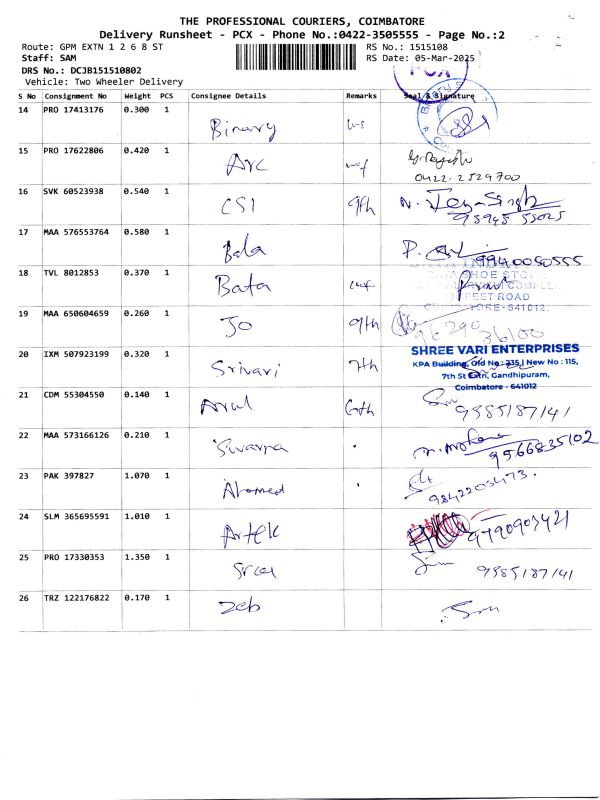 THE PROFESSIONAL COURIERS, COIMBATORE
Delivery Runsheet - PCX - Phone No.:0422-3505555 - Page No.:2
Route: GPM EXTN 1 2 6 8 ST RS No.: 1515108
Staff: SAM RS Date: 05-Mar-2025
DRS No.: DCJB151510802
Vehicle: Two Wheeler Delivery
S No Consignment No Weight PCS Consignee Details Remarks Seal & Signature
14 PRO 17413176 0.300 1 Binary
15 PRO 17622806 0.420 1 Arc
0422-2529700
16 SVK 60523938 0.540 1 CSI 9th N. Jeya Singh
95948 55025
17 MAA 576553764 0.580 1 Bala P.
9940050555
18 TVL 8012853 0.370 1 Bata
SHOE STO
COMPLEX
FEET ROAD
ORE-641012.
19 MAA 650604659 0.260 1 Jo 9th 96290
36100
20 IXM 507923199 0.320 1 Srivari 7th
SHREE VARI ENTERPRISES
KPA Building, Old No : 235, New No : 115,
7th St Extn, Gandhipuram,
Coimbatore - 641012
21 CDM 55304550 0.140 1 Arul 6th 9985187141
22 MAA 573166126 0.210 1 Swarna 9566835102
23 PAK 397827 1.070 1 Ahamed 9842203473.
24 SLM 365695591 1.010 1 Artek 9790903421
25 PRO 17330353 1.350 1 9985187141
26 TRZ 122176822 0.170 1 Zeb